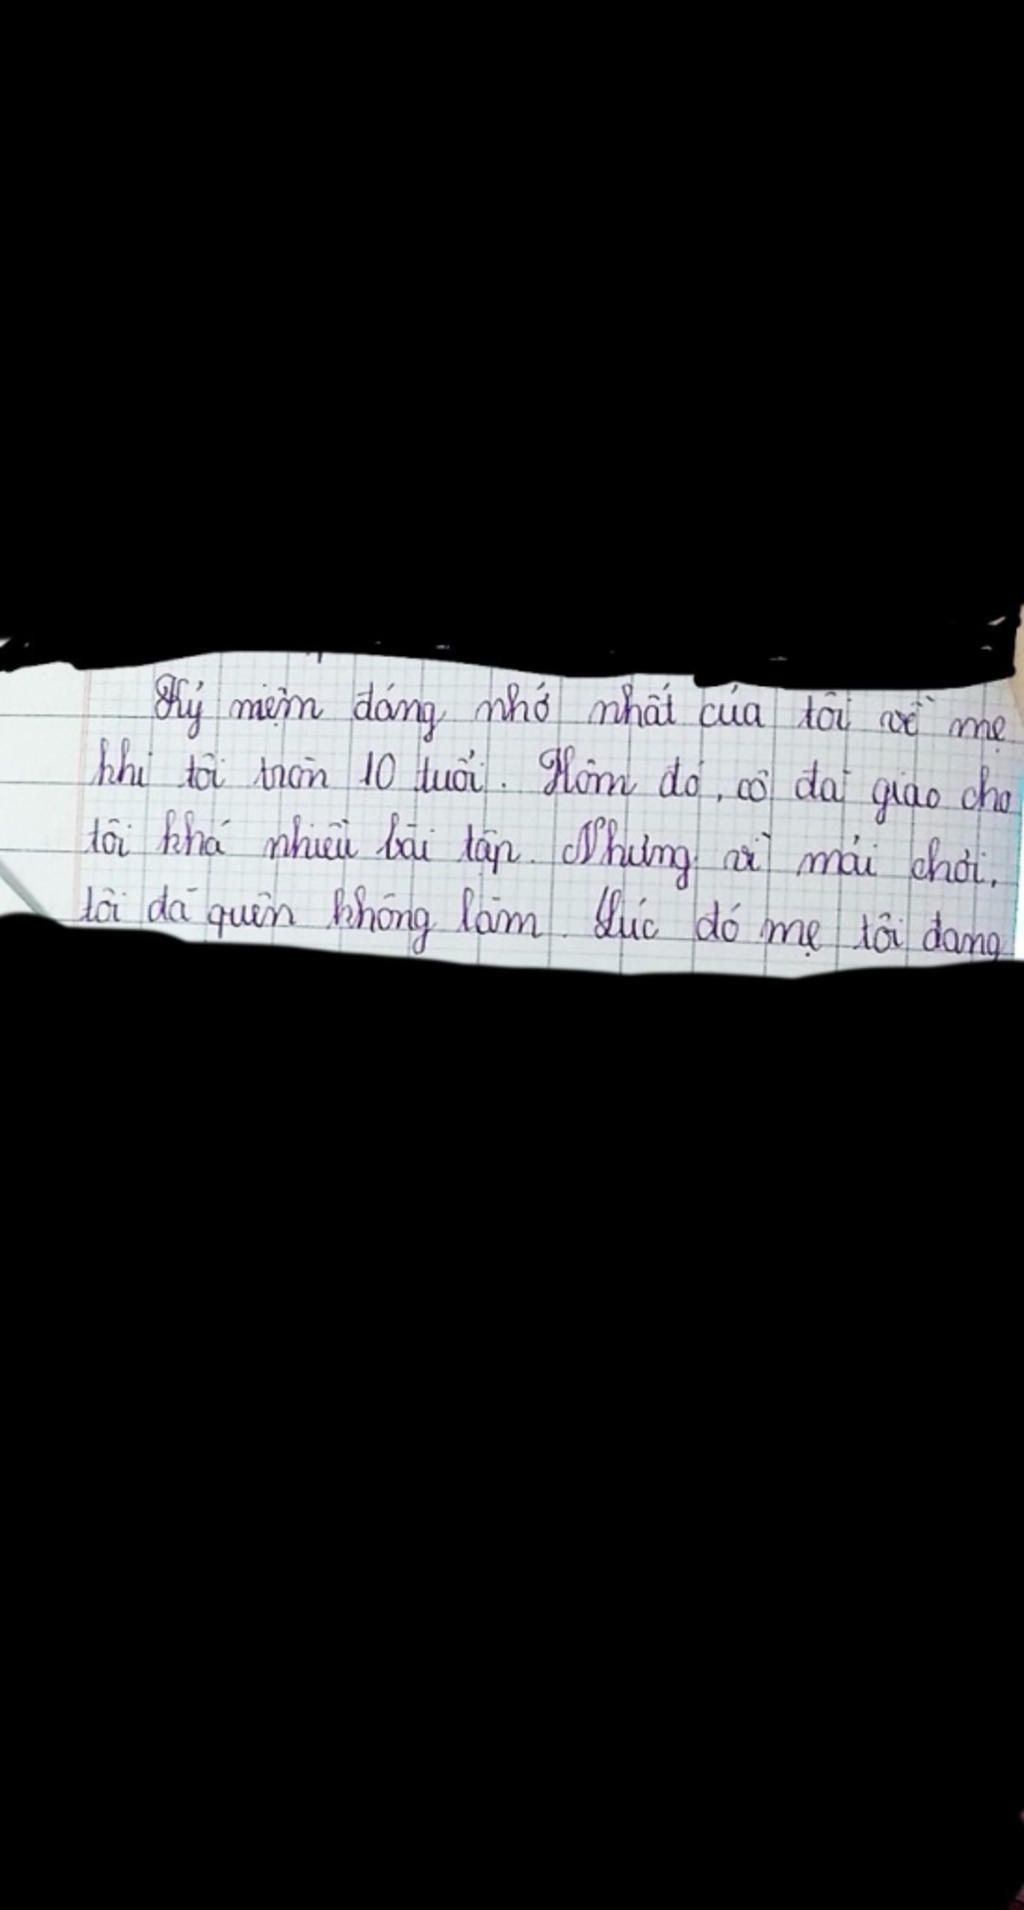 Kỷ niệm đáng nhớ nhất của tôi về mẹ
khi tôi tròn 10 tuổi. Hôm đó, cô đã giao cho
tôi khá nhiều bài tập. Nhưng vì mải chơi,
tôi đã quên không làm. Lúc đó mẹ tôi đang